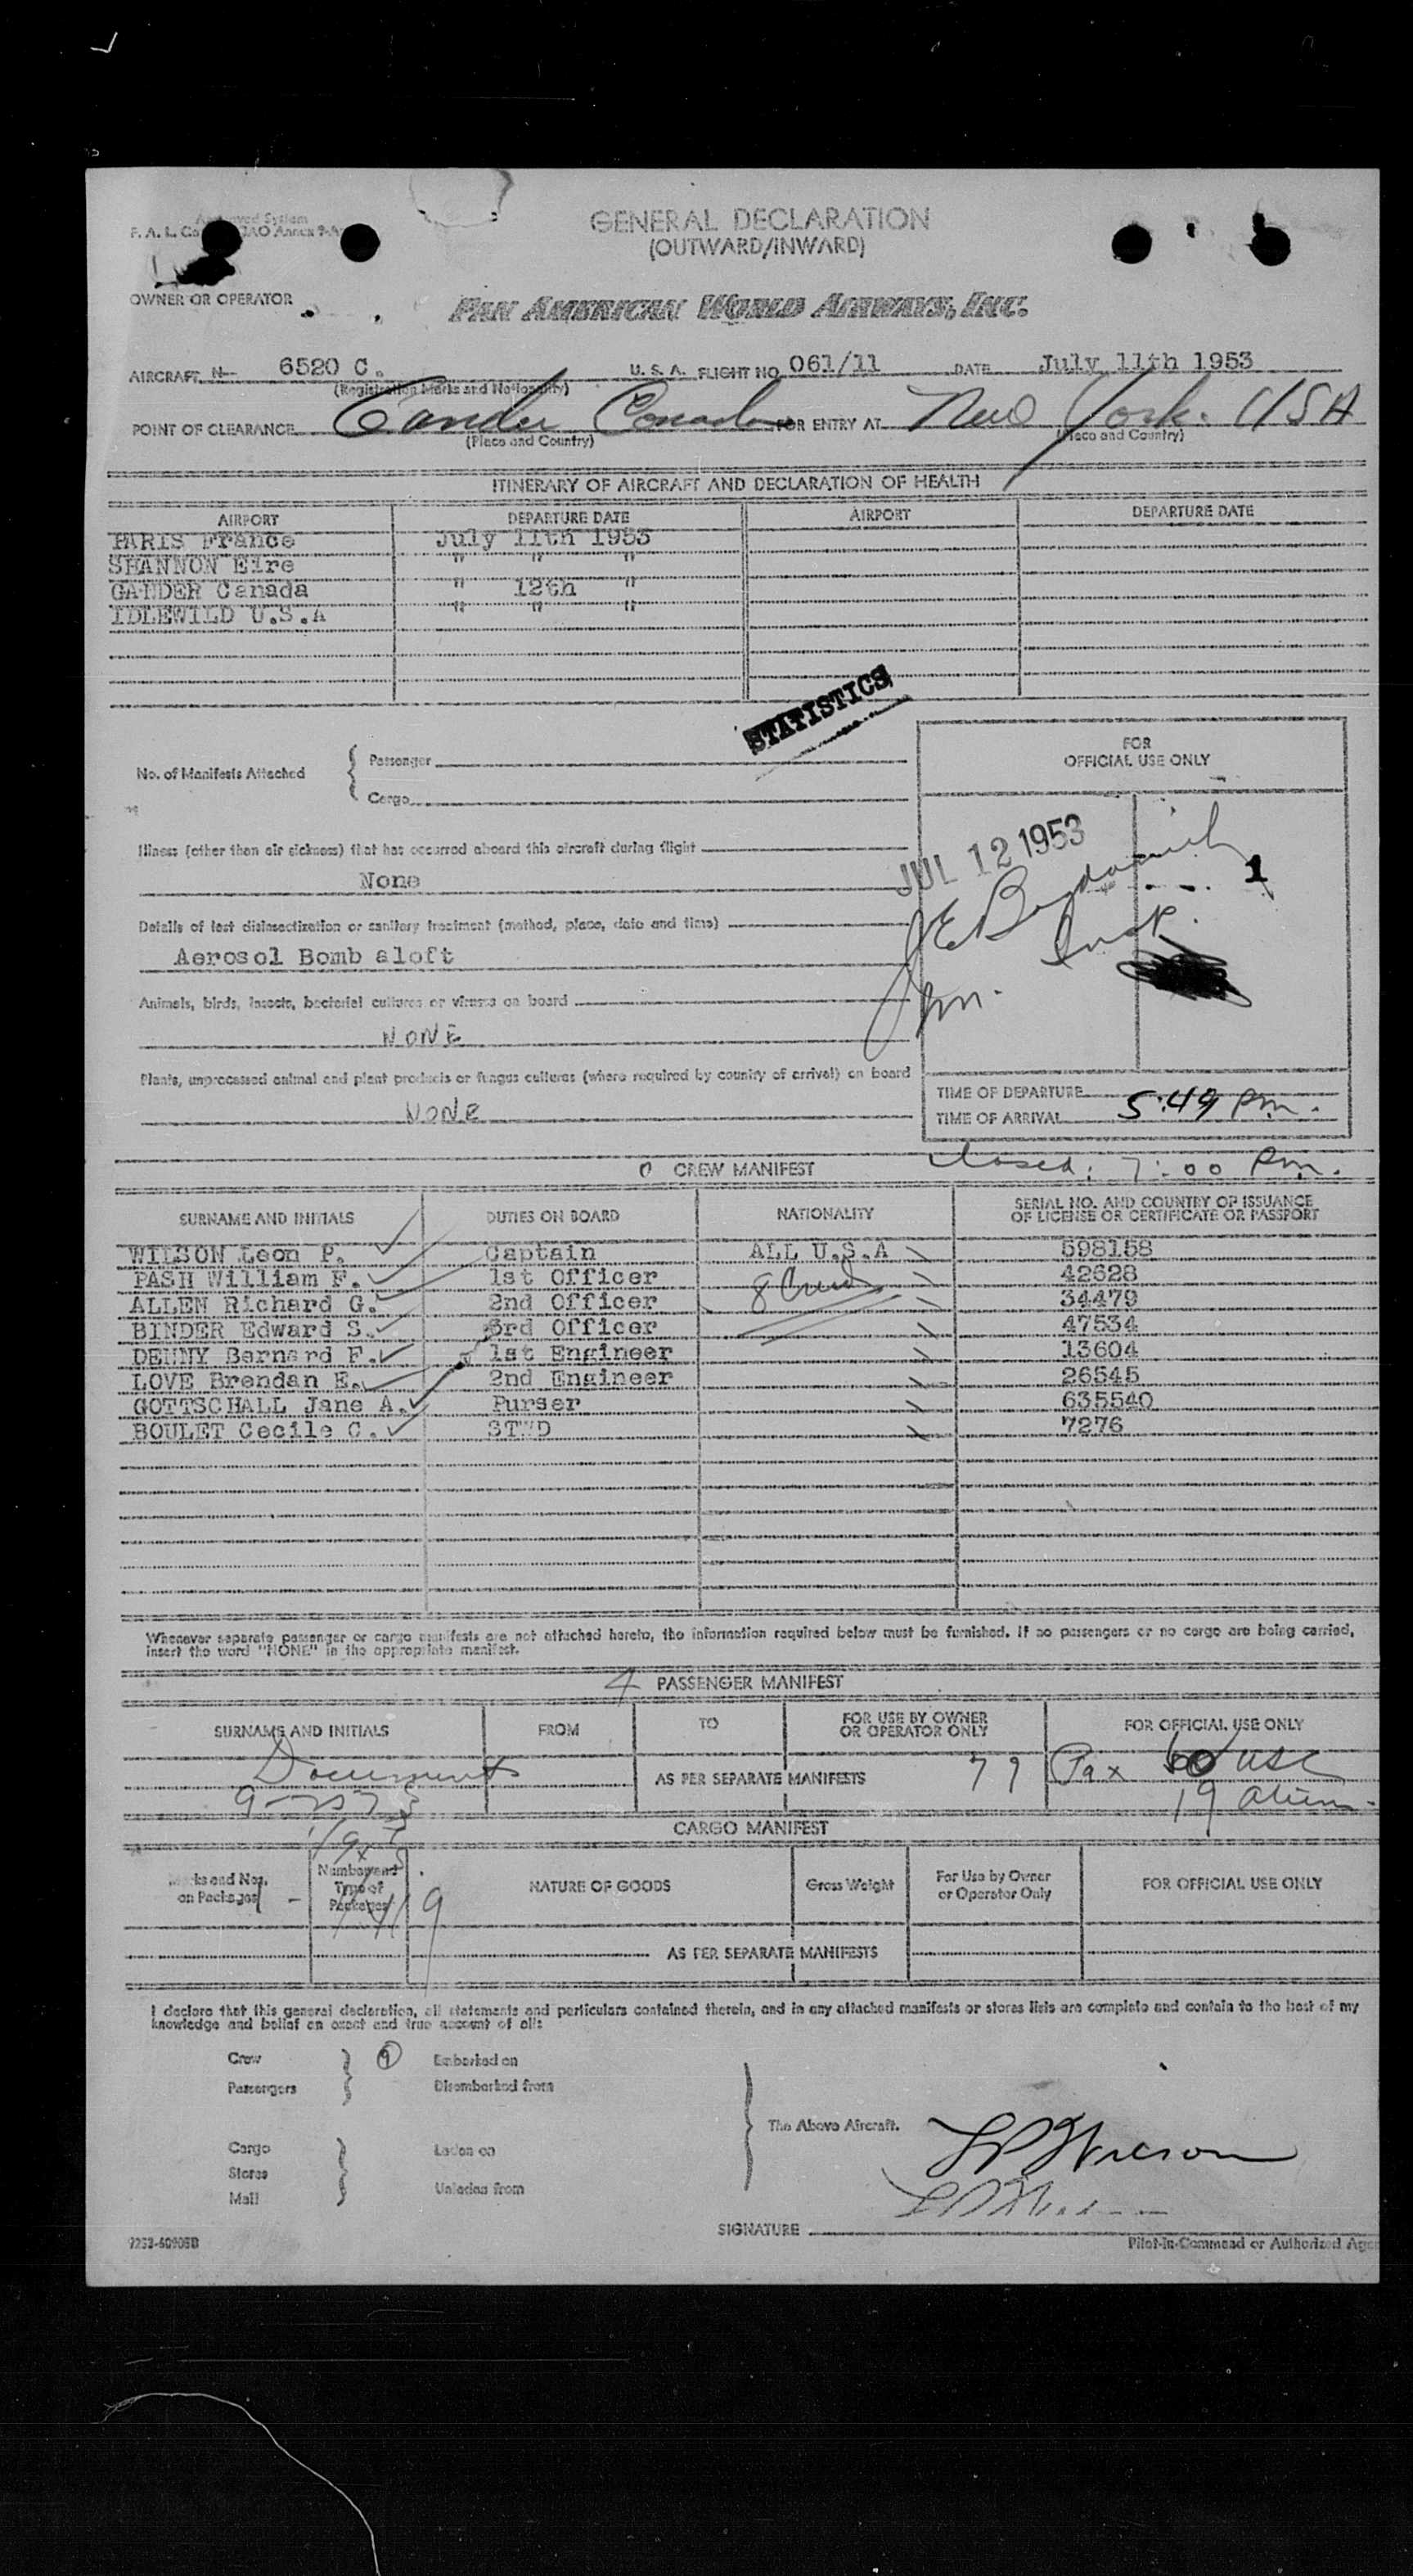 GENERAL DECLARATION
(OUTWARD/INWARD)
OWNER OR OPERATOR
PAN AMERICAN WORLD AIRWAYS, INC.
AIRCRAFT N- 6520 C. U. S. A. FLIGHT NO. 061/11 DATE July 11th 1953
(Registration Marks and Nationality)
POINT OF CLEARANCE Gander Canada FOR ENTRY AT New York. USA
(Place and Country) (Place and Country)
ITINERARY OF AIRCRAFT AND DECLARATION OF HEALTH
AIRPORT DEPARTURE DATE AIRPORT DEPARTURE DATE
PARIS France July 11th 1953
SHANNON Eire " " "
GANDER Canada " 12th "
IDLEWILD U.S.A " " "
STATISTICS
No. of Manifests Attached { Passenger
Cargo
FOR
OFFICIAL USE ONLY
Illness (other than air sickness) that has occurred aboard this aircraft during flight
None
JUL 12 1953
1
Details of last disinsectization or sanitary treatment (method, place, date and time)
Aerosol Bomb aloft
Insp.
Animals, birds, insects, bacterial cultures or viruses on board
NONE
Plants, unprocessed animal and plant products or fungus cultures (where required by country of arrival) on board
NONE
TIME OF DEPARTURE
TIME OF ARRIVAL 5:49 Pm.
closed: 7:00 Pm.
CREW MANIFEST
SURNAME AND INITIALS DUTIES ON BOARD NATIONALITY SERIAL NO. AND COUNTRY OF ISSUANCE
OF LICENSE OR CERTIFICATE OR PASSPORT
WILSON Leon P. Captain ALL U.S.A 598158
PASH William F. 1st Officer 8 Crew 42628
ALLEN Richard G. 2nd Officer 34479
BINDER Edward S. 3rd Officer 47534
DENNY Bernard F. 1st Engineer 13604
LOVE Brendan E. 2nd Engineer 26545
GOTTSCHALL Jane A. Purser 635540
BOULET Cecile C. STWD 7276
Whenever separate passenger or cargo manifests are not attached hereto, the information required below must be furnished. If no passengers or no cargo are being carried,
insert the word "NONE" in the appropriate manifest.
4 PASSENGER MANIFEST
SURNAME AND INITIALS FROM TO FOR USE BY OWNER
OR OPERATOR ONLY FOR OFFICIAL USE ONLY
Documents AS PER SEPARATE MANIFESTS 79 Pax 60 USC
19 alien
CARGO MANIFEST
Marks and Nos.
on Packages Number and
Type of
Packages NATURE OF GOODS Gross Weight For Use by Owner
or Operator Only FOR OFFICIAL USE ONLY
AS PER SEPARATE MANIFESTS
I declare that this general declaration, all statements and particulars contained therein, and in any attached manifests or stores lists are complete and contain to the best of my
knowledge and belief an exact and true account of all:
Crew
Passengers } 9 Embarked on
Disembarked from
The Above Aircraft.
Cargo
Stores
Mail } Laden on
Unladen from
LPWilson
SIGNATURE
Pilot-in-Command or Authorized Agent